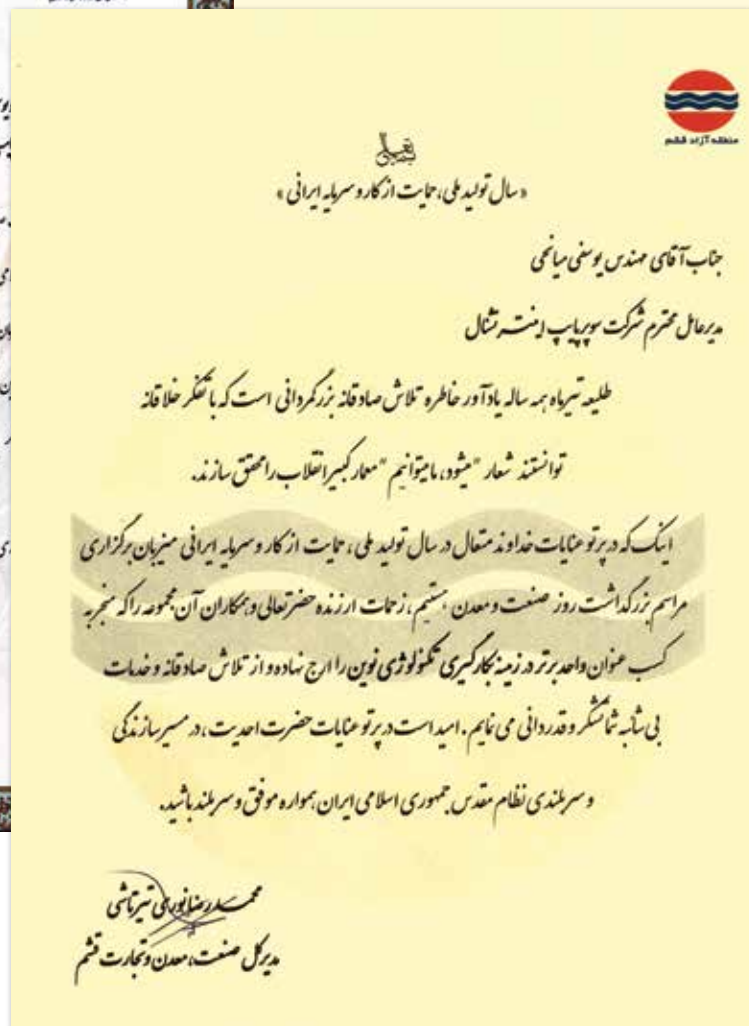 منطقه آزاد قشم
بسمه تعالی
«سال تولید ملی، حمایت از کار و سرمایه ایرانی»
جناب آقای مهندس یوسفی میانجی
مدیرعامل محترم شرکت سوپرپایپ اینترنشنال
طلیعه تیرماه همه ساله یادآور خاطره تلاش صادقانه بزرگمردانی است که با تفکر خلاقانه
توانستند شعار "میشود، ما میتوانیم" معمار کبیر انقلاب را محقق سازند.
اینک که در پرتو عنایات خداوند متعال در سال تولید ملی، حمایت از کار و سرمایه ایرانی میزبان برگزاری
مراسم بزرگداشت روز صنعت و معدن هستیم، زحمات ارزنده حضرتعالی و همکاران آن مجموعه را که منجر به
کسب عنوان واحد برتر در زمینه بکارگیری تکنولوژی نوین را ارج نهاده و از تلاش صادقانه و خدمات
بی شائبه شما تشکر و قدردانی می نمایم. امید است در پرتو عنایات حضرت احدیت، در مسیر سازندگی
و سربلندی نظام مقدس جمهوری اسلامی ایران همواره موفق و سربلند باشید.
محمدرضا نوری تیرتاشی
مدیرکل صنعت، معدن و تجارت قشم